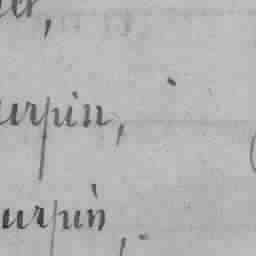 er,
urpin,
urpin,.
(